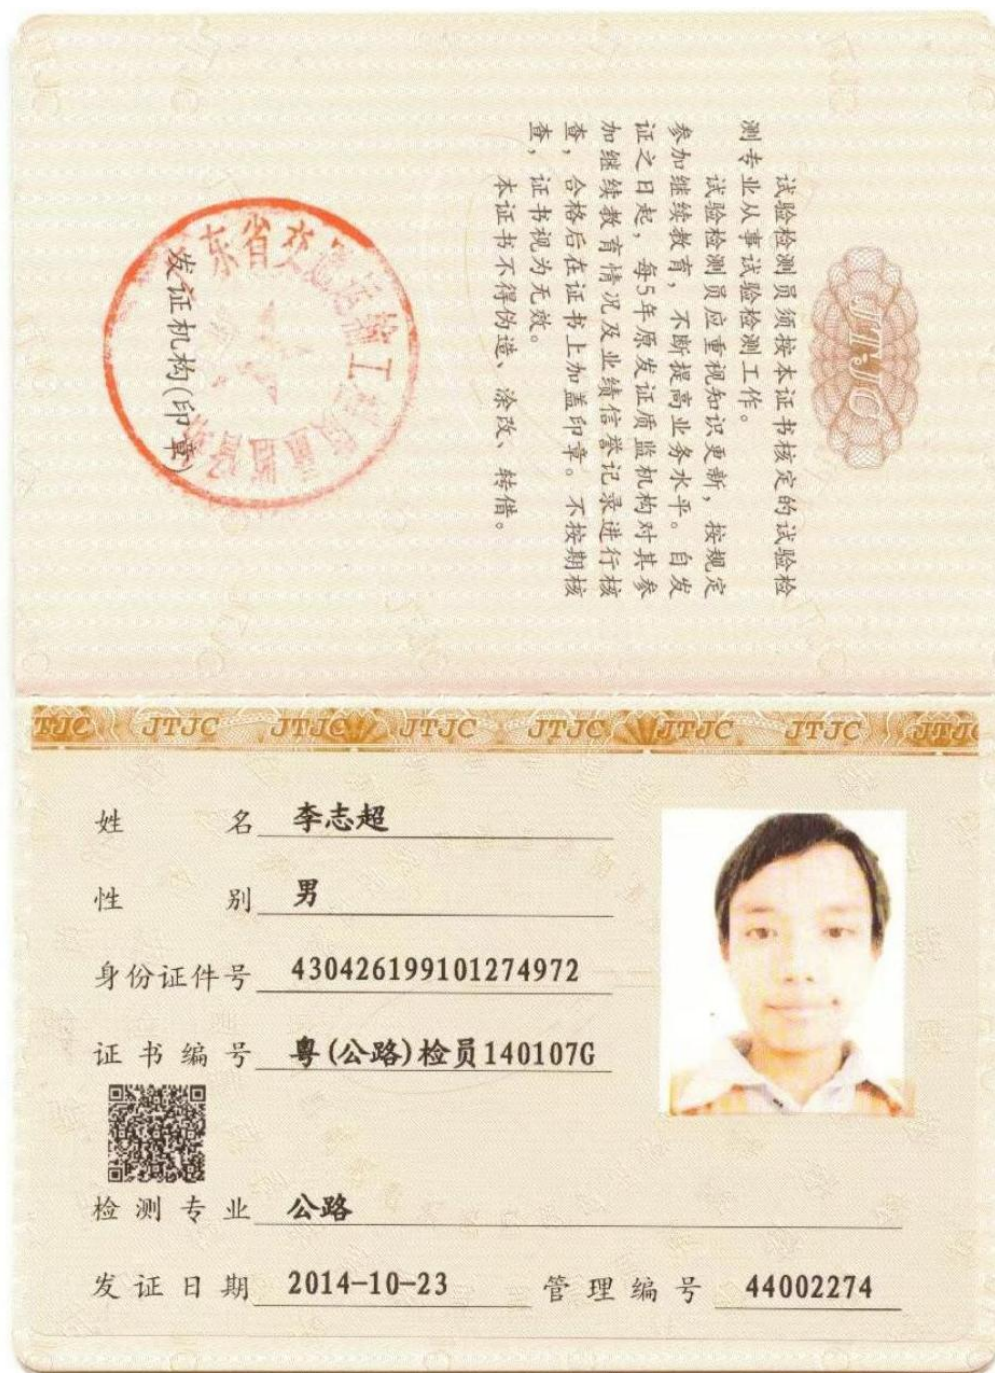 JTJC
试验检测员须按本证书核定的试验检
测专业从事试验检测工作。
试验检测员应重视知识更新，按规定
参加继续教育，不断提高业务水平。自发
证之日起，每5年原发证质监机构对其参
加继续教育情况及业绩信誉记录进行核
查，合格后在证书上加盖印章。不按期核
查，证书视为无效。
本证书不得伪造、涂改、转借。
东省交通运输工程质量监督
发证机构(印章)
TJC JTJC JTJC JTJC JTJC JTJC JTJC JTJC
姓名 李志超
性别 男
身份证件号 430426199101274972
证书编号 粤(公路)检员140107G
检测专业 公路
发证日期 2014-10-23 管理编号 44002274